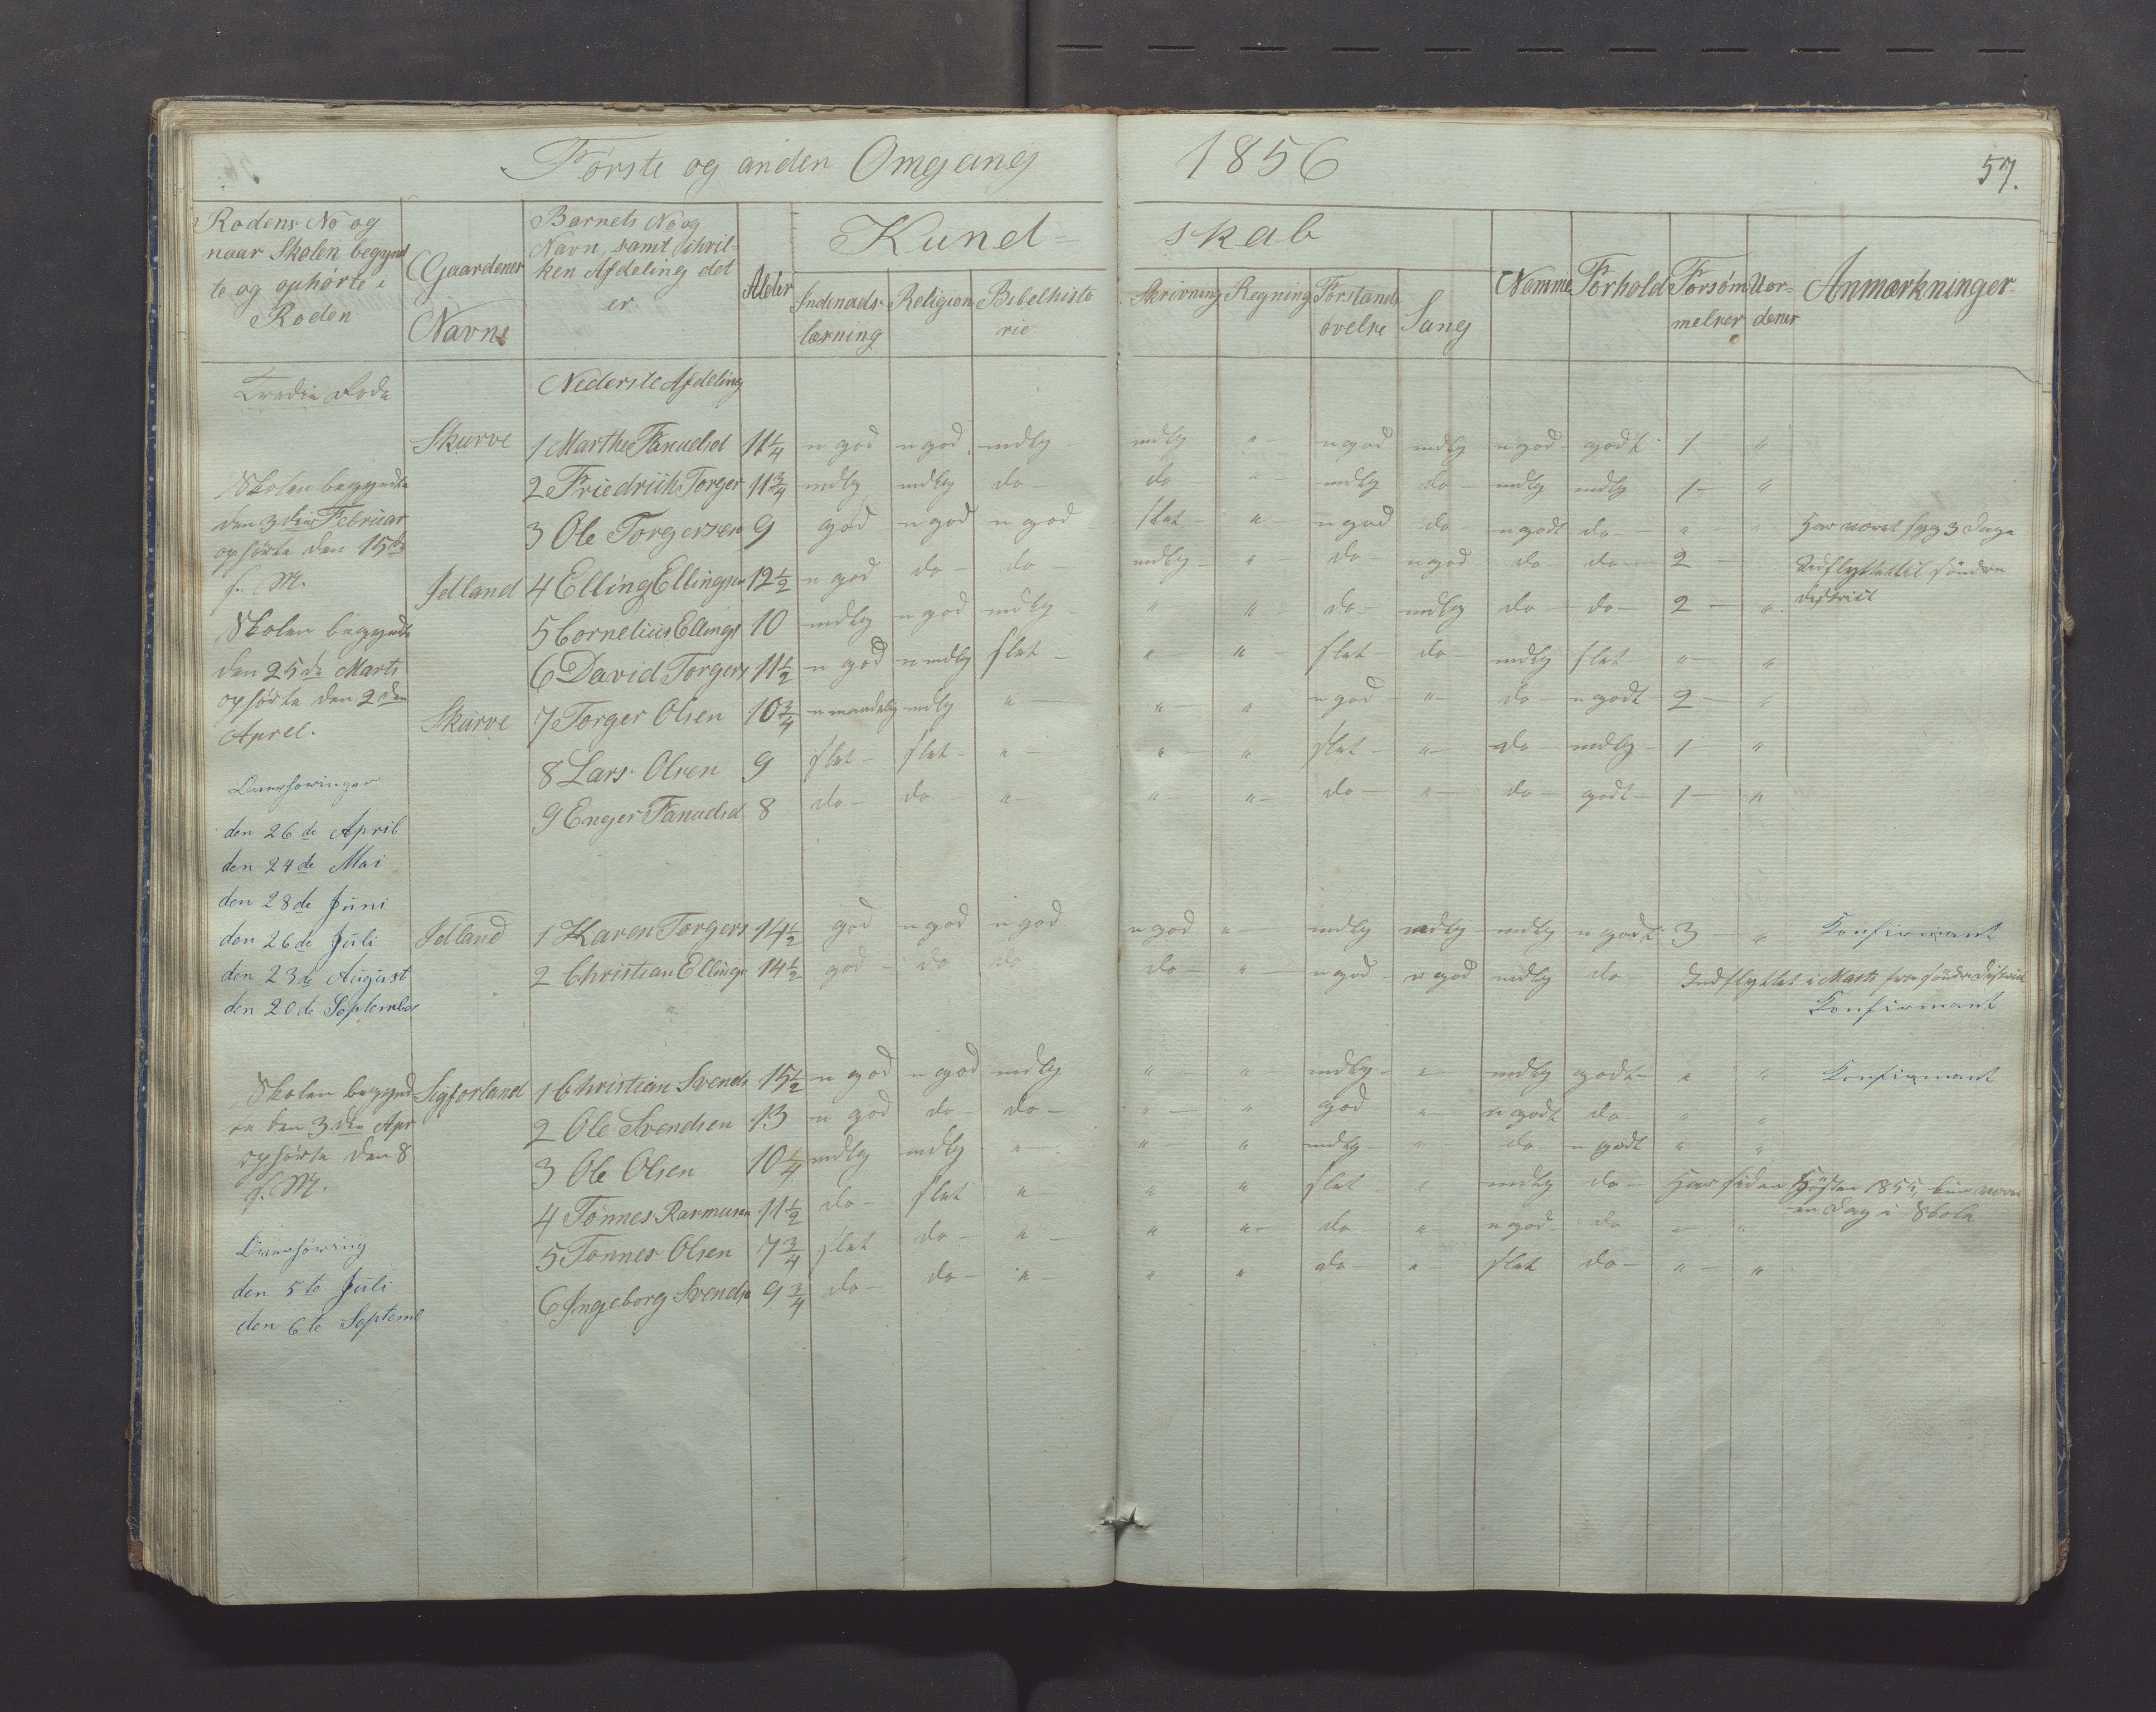 Første og anden Omgang 1856
57.
Rodens No og
naar Skolen begynd
te og ophörte i
Roden
Gaardenes
Navne
Barnets No og
Navn, samt ihvil-
ken Afdeling det
er.
Alder
Kund- skab
Indenads-
læsning
Religion
Bibelhisto
rie
Skrivning
Regning
Forstands
övelse
Sang
Nemme
Förhold
Forsøm
melser
Uor-
dener
Anmærkninger
Tredie Rode
Nederste Afdeling
Skurve 1 Marthe Knudsd 11 1/4 n god n god mdlg mdlg " n god mdlg n god godt 1 "
Skolen begyndte
2 Friedrich Torger 11 3/4 mdlg mdlg do do " mdlg do mdlg mdlg 1 "
den 3die Februar
3 Ole Torgersen 9 god n god n god slet " n god do n godt do " " Har været syg 3 Dage
ophörte den 15de
s. M.
Jdland 4 Elling Ellingsen 12 1/2 n god do do mdlg " do n god do do 2 Udflyttet til söndre
District
Skolen begyndte
5 Cornelius Ellings 10 mdlg n god mdlg " " do mdlg do do 2 "
den 25de Marts
6 David Torgers 11 1/2 n god n mdlg slet " " slet do mdlg slet " "
ophörte den 2den
Aprel.
Skurve 7 Torger Olsen 10 3/4 n maadelig mdlg " " " n god " do n godt 2 "
8 Lars Olsen 9 slet slet " " " slet " do mdlg 1 "
Overhöringer
9 Enger Knudsd 8 do do " " " do " do godt 1 "
den 26de April
den 24de Mai
den 28de Juni
den 26de Juli
Jdland 1 Karen Torgers 14 1/2 god n god n god n god " mdlg mdlg mdlg n godt 3 " Konfirmant
den 23de August
2 Christian Ellings 14 1/2 god do do do " n god n god mdlg do Indflyttet i Marts fra söndre District
den 20de September
Konfirmant
Skolen begynd
Sigforland 1 Christian Svends 15 1/2 n god n god mdlg " " mdlg " mdlg godt " " Konfirmant
te den 3die Apr
2 Ole Svendsen 13 n god do do " " god " n godt do " "
ophörte den 8
s. M.
3 Ole Olsen 10 1/4 mdlg mdlg " " " mdlg " do n godt " "
4 Tönnes Rasmusen 11 1/2 do slet " " " slet " mdlg do Har siden Hösten 1855, kun været
en Dag i Skole
5 Tonnes Olsen 7 3/4 slet do " " " do " n god do " "
Overhöring
6 Ingeborg Svends 9 3/4 do do " " " do " slet do " "
den 5te Juli
den 6te Septemb